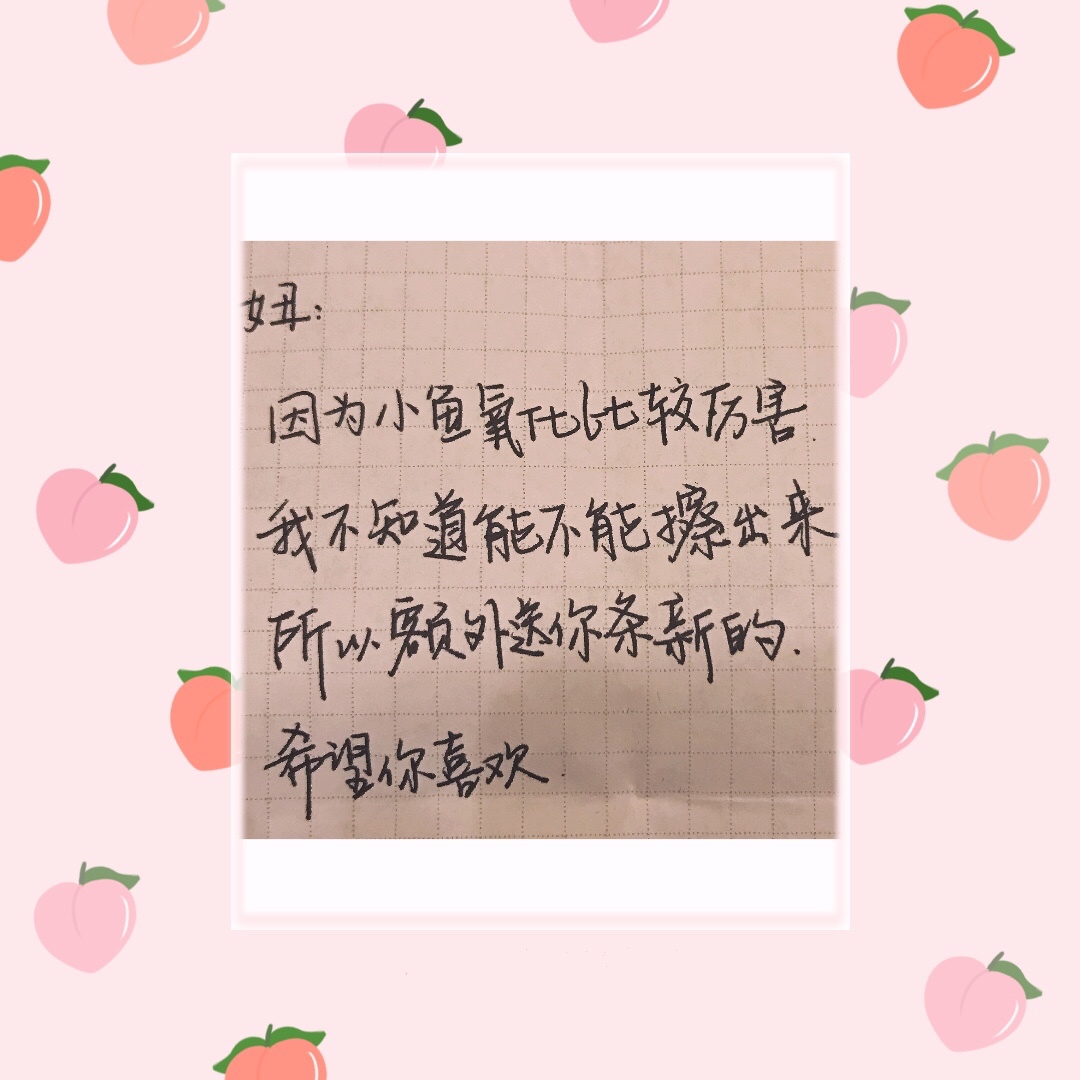 妞:
因为小鱼氧化比较厉害.
我不知道能不能擦出来
所以额外送你条新的.
希望你喜欢.